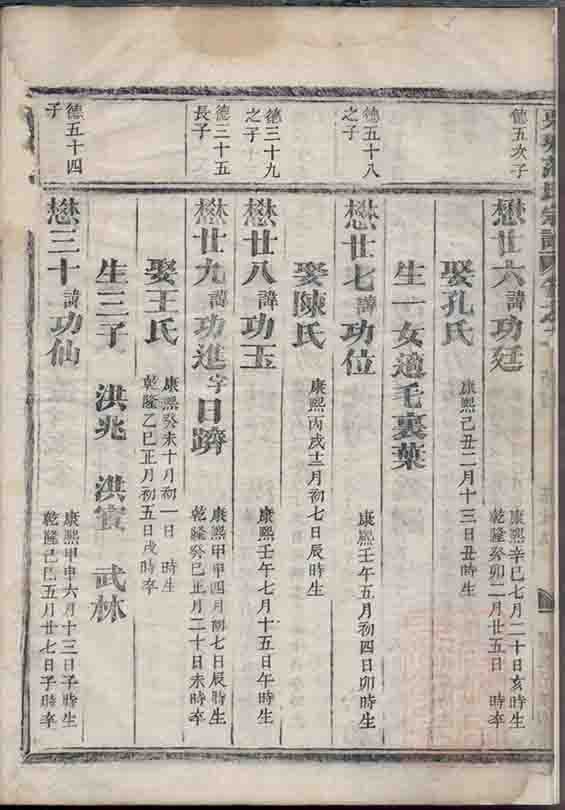 德五次子
懋廿六諱功廷
康熙辛巳七月二十日亥時生
乾隆癸卯二月廿五日　時卒
娶孔氏
康熙己丑二月十三日丑時生
生一女適毛裏葉
德五十八之子
懋廿七諱功位
康熙壬午五月初四日卯時生
娶陳氏
康熙丙戌十二月初七日辰時生
德三十九之子
懋廿八諱功玉
康熙壬午七月十五日午時生
德三十五長子
懋廿九諱功進字日躋
康熙甲申四月初七日辰時生
乾隆癸巳正月二十日未時卒
娶王氏
康熙癸未十月初一日　時生
乾隆乙巳正月初五日戌時卒
生三子　洪兆　洪　武林
德五十四子
懋三十諱功仙
康熙甲申六月十三日子時生
乾隆己巳五月廿七日子時卒